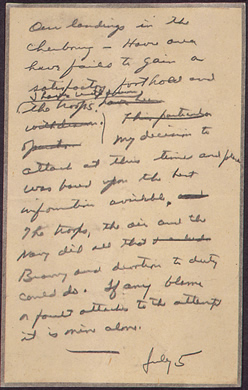 Our landings in the
Cherbourg - Havre area
have failed to gain a
satisfactory foothold and
I have withdrawn
the troops. have been
withdrawn
This particular
operation
My decision to
attack at this time and place
was based upon the best
information available, and
The troops, the air and the
Navy did all that
Bravery and devotion to duty
could do. If any blame
or fault attaches to the attempt
it is mine alone.
July 5